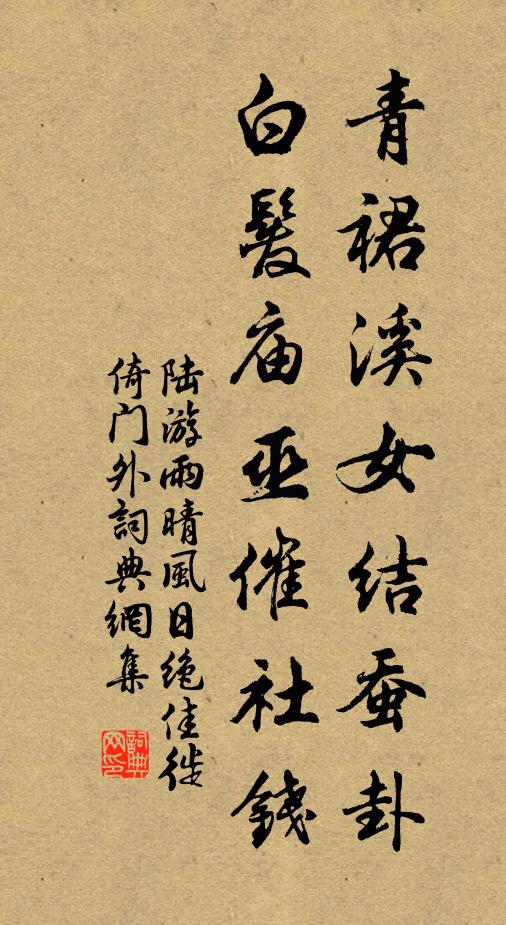 青裙溪女结蚕卦
白髮庙巫催社錢
陆游雨晴風日绝佳徙
倚门外詞典網集
詞典网印